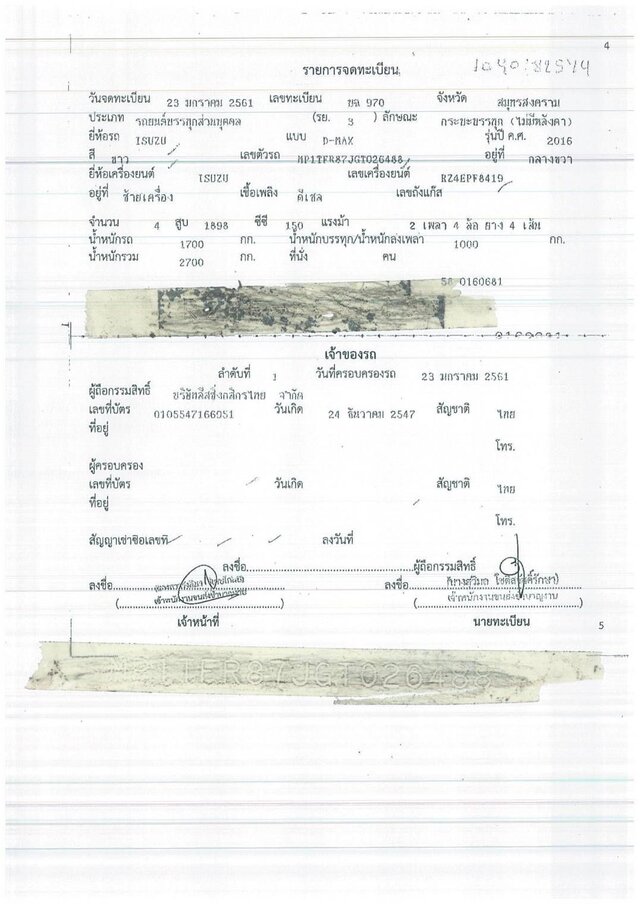 4
1040182574
รายการจดทะเบียน
วันจดทะเบียน 23 มกราคม 2561 เลขทะเบียน บฉ 970 จังหวัด สมุทรสงคราม
ประเภท รถยนต์บรรทุกส่วนบุคคล (รย. 3 ) ลักษณะ กระบะบรรทุก (ไม่มีหลังคา)
ยี่ห้อรถ ISUZU แบบ D-MAX รุ่นปี ค.ศ. 2016
สี ขาว เลขตัวรถ MP1TFR87JGT026488 อยู่ที่ กลางขวา
ยี่ห้อเครื่องยนต์ ISUZU เลขเครื่องยนต์ RZ4EPF8419
อยู่ที่ ซ้ายเครื่อง เชื้อเพลิง ดีเซล เลขถังแก๊ส
จำนวน 4 สูบ 1898 ซีซี 150 แรงม้า 2 เพลา 4 ล้อ ยาง 4 เส้น
น้ำหนักรถ 1700 กก. น้ำหนักบรรทุก/น้ำหนักลงเพลา 1000 กก.
น้ำหนักรวม 2700 กก. ที่นั่ง คน
58 0160681
เจ้าของรถ
ลำดับที่ 1 วันที่ครอบครองรถ 23 มกราคม 2561
ผู้ถือกรรมสิทธิ์ บริษัทลีสซิ่งกสิกรไทย จำกัด
เลขที่บัตร 0105547166051 วันเกิด 24 ธันวาคม 2547 สัญชาติ ไทย
ที่อยู่
โทร.
ผู้ครอบครอง
เลขที่บัตร วันเกิด สัญชาติ ไทย
ที่อยู่
โทร.
สัญญาเช่าซื้อเลขที่ ลงวันที่
ลงชื่อ ผู้ถือกรรมสิทธิ์
ลงชื่อ ลงชื่อ
เจ้าพนักงานขนส่งชำนาญงาน เจ้าพนักงานขนส่งชำนาญงาน
เจ้าหน้าที่ นายทะเบียน
5
MP1TFR87JGT026488